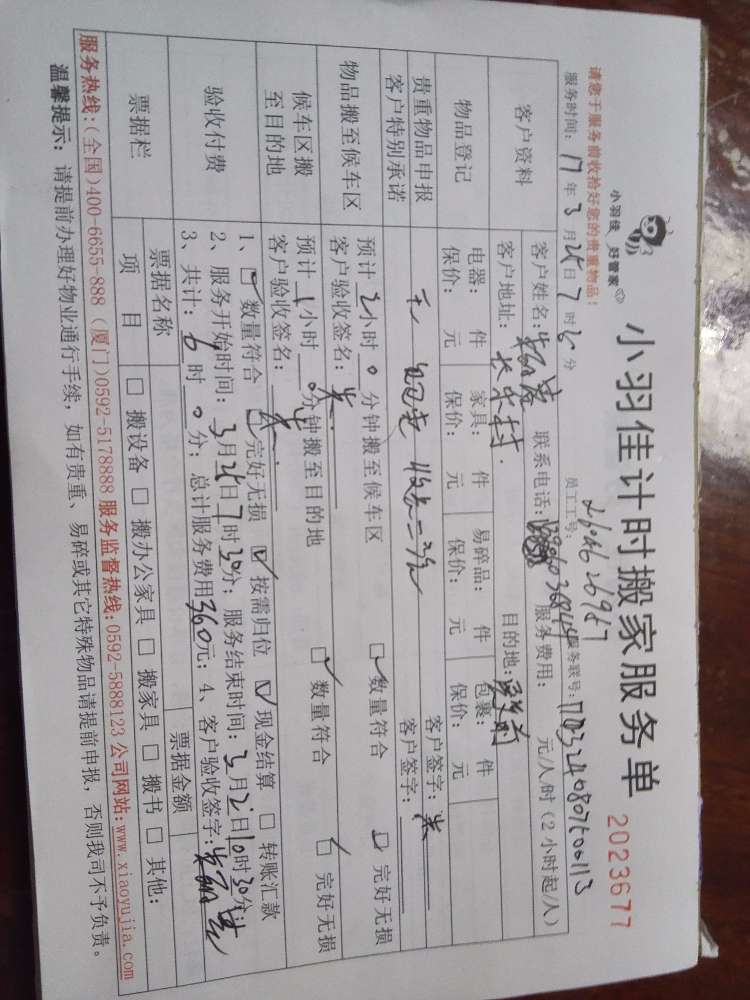 小羽佳 好管家
小羽佳计时搬家服务单 2023677
请您于服务前收拾好您的贵重物品！
员工工号：
服务时间：17年3月25日7时30分
服务联号：
客户资料
客户姓名： 联系电话： 服务费用： 元/人/时（2小时起/人）
客户地址：长乐村. 目的地：
物品登记
电器： 件 家具： 件 易碎品： 件 包裹： 件
保价： 元 保价： 元 保价： 元 保价： 元
贵重物品申报 无 客户签字：
客户特别承诺 客户签字：
物品搬至候车区
预计2小时0分钟搬至候车区 ☑数量符合 ☑完好无损
客户验收签名：
候车区搬至目的地
预计1小时0分钟搬至目的地 ☑数量符合 ☑完好无损
客户验收签名：
验收付费
1、☑数量符合 ☑完好无损 ☑按需归位 ☑现金结算 □转账汇款
2、服务开始时间：3月25日7时30分；服务结束时间：3月2日10时30分
3、共计：6时0分；总计服务费用360元；4、客户验收签字：
票据栏
票据名称 票据金额
项目 □搬设备 □搬办公家具 □搬家具 □搬书 □其他：
服务热线：(全国)400-6655-888 (厦门)0592-5178888 服务监督热线：0592-5888123 公司网站：www.xiaoyujia.com
温馨提示：请提前办理好物业通行手续，如有贵重、易碎或其它特殊物品请提前申报，否则我司不予负责。